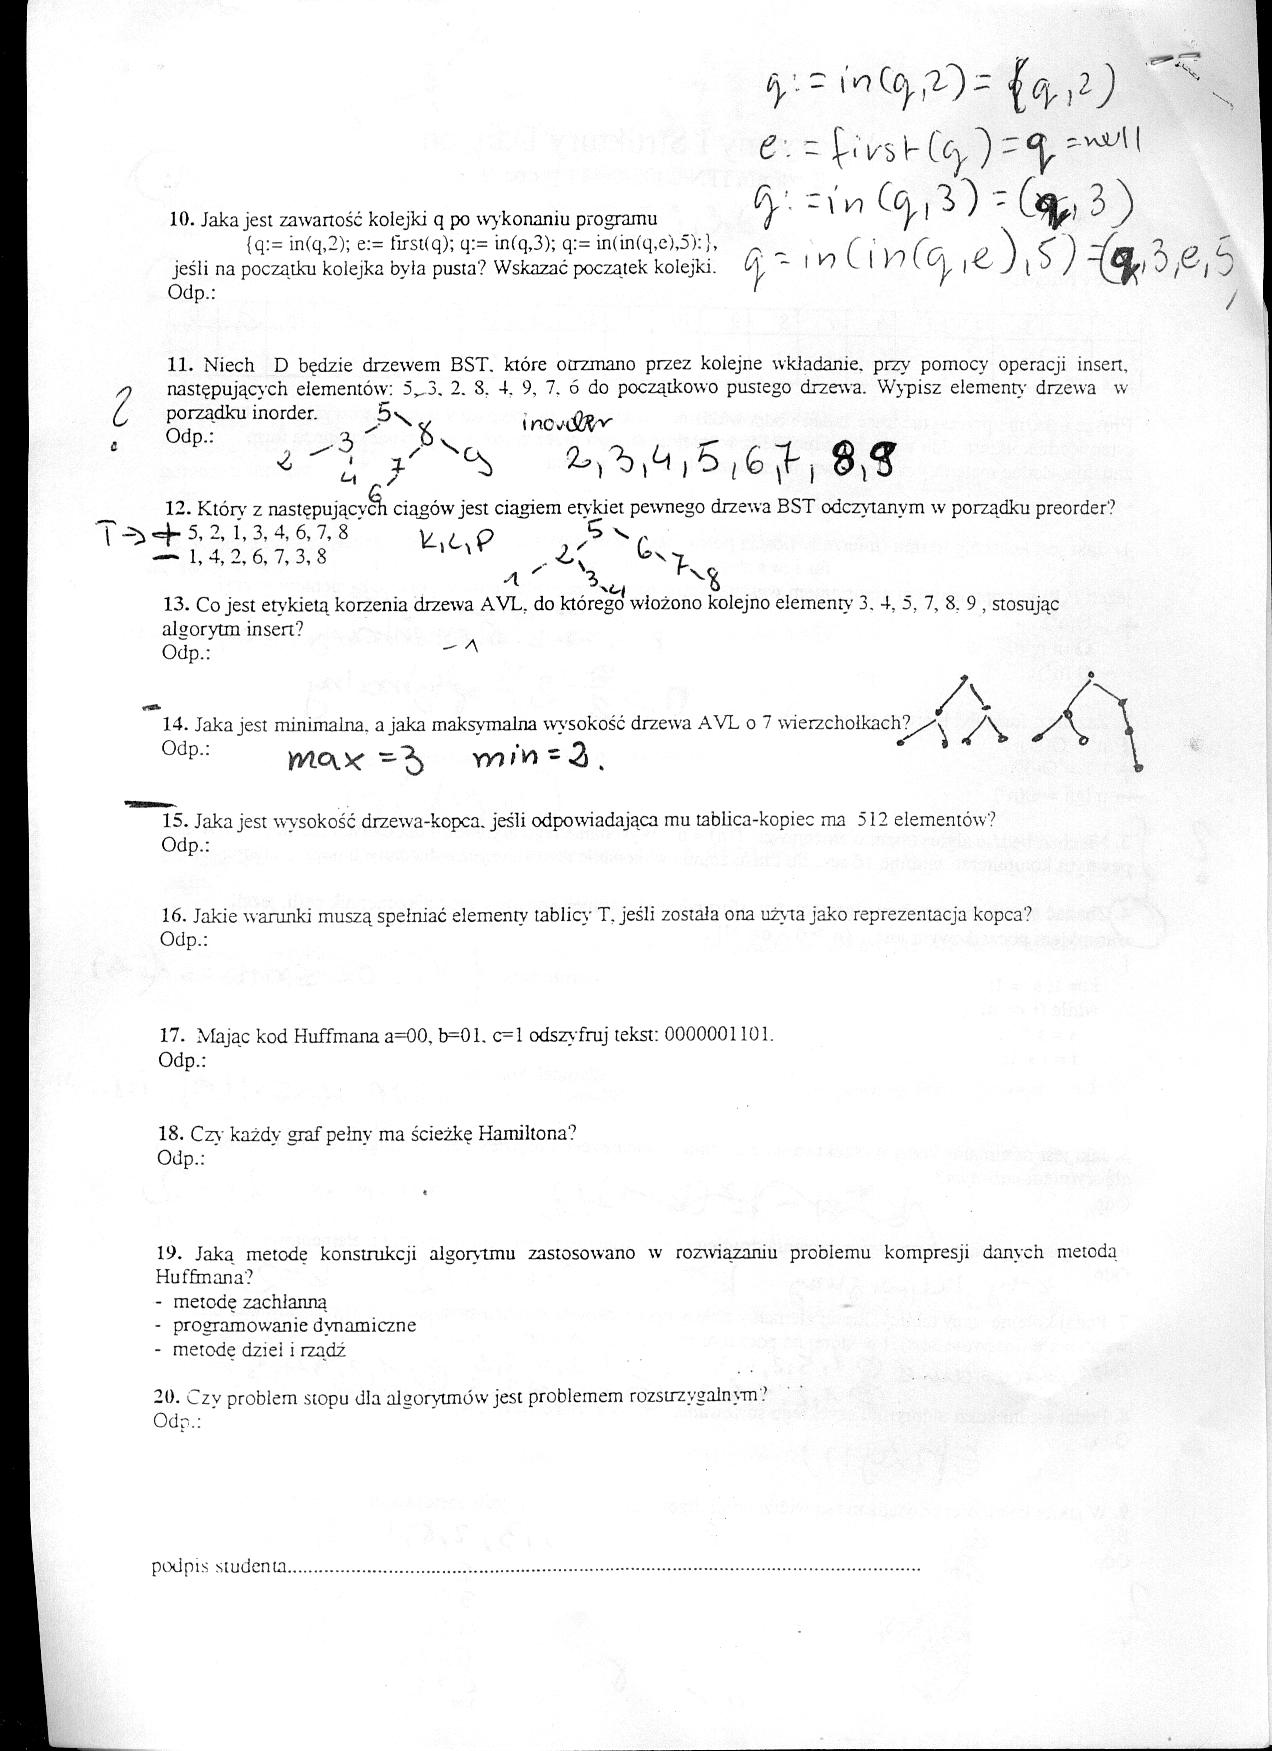 q:=in(q,2)=(q,2)
e:=first(q)=q=null
q:=in(q,3)=(q,3)
q=in(in(q,e),5)=(q,3,e,5)
10. Jaka jest zawartość kolejki q po wykonaniu programu
{q:= in(q,2); e:= first(q); q:= in(q,3); q:= in(in(q,e),5);},
jeśli na początku kolejka była pusta? Wskazać początek kolejki.
Odp.:
11. Niech D będzie drzewem BST, które otrzymano przez kolejne wkładanie, przy pomocy operacji insert,
następujących elementów: 5, 3, 2, 8, 4, 9, 7, 6 do początkowo pustego drzewa. Wypisz elementy drzewa w
?
porządku inorder.
Odp.:
5
3 8
2 4 7 9
6
inorder
2,3,4,5,6,7,8,9
12. Który z następujących ciągów jest ciągiem etykiet pewnego drzewa BST odczytanym w porządku preorder?
T => + 5, 2, 1, 3, 4, 6, 7, 8
— 1, 4, 2, 6, 7, 3, 8
K,L,P
5
2 6
1 3 7
4 8
13. Co jest etykietą korzenia drzewa AVL, do którego włożono kolejno elementy 3, 4, 5, 7, 8, 9 , stosując
algorytm insert?
Odp.:
-1
14. Jaka jest minimalna, a jaka maksymalna wysokość drzewa AVL o 7 wierzchołkach?
Odp.:
max =3 min =2.
15. Jaka jest wysokość drzewa-kopca, jeśli odpowiadająca mu tablica-kopiec ma 512 elementów?
Odp.:
16. Jakie warunki muszą spełniać elementy tablicy T, jeśli została ona użyta jako reprezentacja kopca?
Odp.:
17. Mając kod Huffmana a=00, b=01, c=1 odszyfruj tekst: 0000001101.
Odp.:
18. Czy każdy graf pełny ma ścieżkę Hamiltona?
Odp.:
19. Jaką metodę konstrukcji algorytmu zastosowano w rozwiązaniu problemu kompresji danych metodą
Huffmana?
- metodę zachłanną
- programowanie dynamiczne
- metodę dziel i rządź
20. Czy problem stopu dla algorytmów jest problemem rozstrzygalnym?
Odp.:
podpis studenta....................